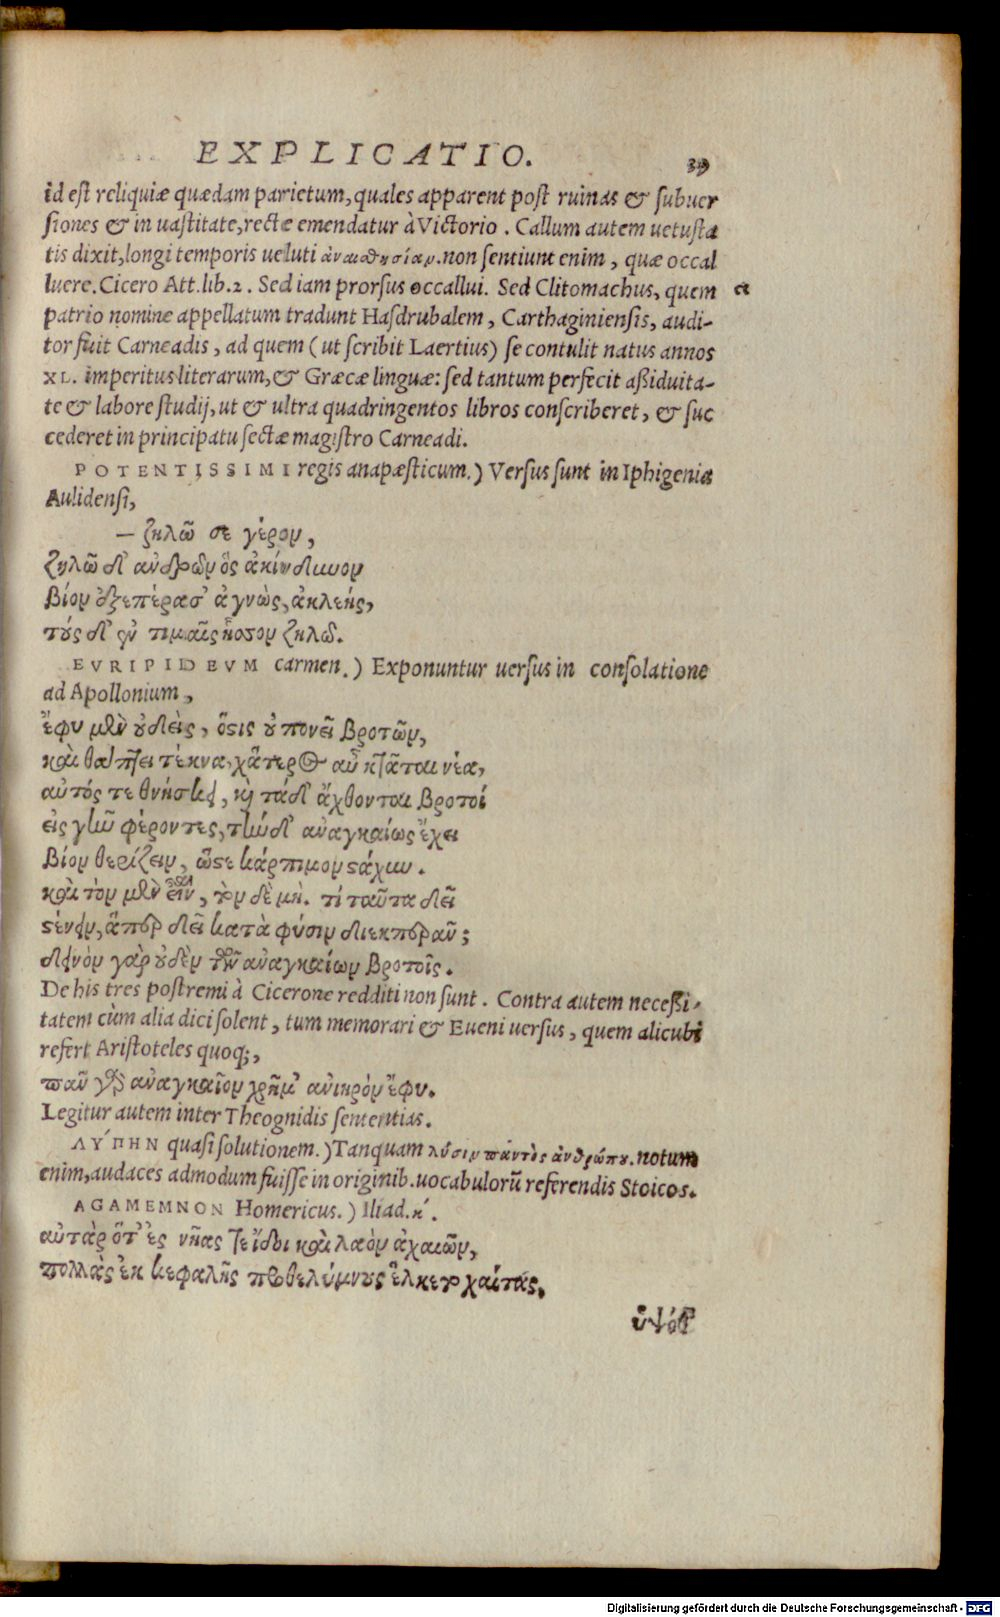 EXPLICATIO. 39
id est reliquiæ quædam parietum, quales apparent post ruinas & subuer
siones & in uastitate, rectæ emendatur à Victorio. Callum autem uetusta
tis dixit, longi temporis ueluti ἀναισθησίαν. non sentiunt enim, quæ occal
luere. Cicero Att. lib. 2. Sed iam prorsus occallui. Sed Clitomachus, quem
patrio nomine appellatum tradunt Hasdrubalem, Carthaginiensis, audi-
tor fuit Carneadis, ad quem (ut scribit Laertius) se contulit natus annos
XL. imperitus literarum, & Græcæ linguæ: sed tantum perfecit aßiduita-
te & labore studij, ut & ultra quadringentos libros conscriberet, & suc
cederet in principatu sectæ magistro Carneadi.
POTENTISSIMI regis anapæsticum.) Versus sunt in Iphigenia
Aulidensi,
— ζηλῶ σε γέρον,
ζηλῶ δ' ἀνδρῶν ὃς ἀκίνδυνον
βίον ἐξεπέρασ' ἀγνὼς, ἀκλεής,
τούς δ' ἐν τιμαῖς ἧσσον ζηλῶ.
EVRIPIDEVM carmen.) Exponuntur uersus in consolatione
ad Apollonium,
ἔφυ μὲν οὐδεὶς, ὅστις οὐ πονεῖ βροτῶν,
καὶ θάπτει τέκνα, χἄτερος αὖ κτᾶται νέα,
αὐτός τε θνήσκει, καὶ τάδ' ἄχθονται βροτοί
εἰς γῆν φέροντες, τὴν δ' ἀναγκαίως ἔχει
βίον θερίζειν, ὥστε κάρπιμον στάχυν.
καὶ τὸν μὲν εἶναι, τὸν δὲ μὴ. τί ταῦτα δεῖ
στένειν, ἅπερ δεῖ κατὰ φύσιν διεκπερᾶν;
δεινὸν γὰρ οὐδὲν τῶν ἀναγκαίων βροτοῖς.
De his tres postremi à Cicerone redditi non sunt. Contra autem neceßi-
tatem cùm alia dici solent, tum memorari & Eueni uersus, quem alicubi
refert Aristoteles quoq;,
πᾶν γὰρ ἀναγκαῖον χρῆμ' ἀνιηρὸν ἔφυ.
Legitur autem inter Theognidis sententias.
ΛΥΠΗΝ quasi solutionem.) Tanquam λύσιν παντὸς ἀνθρώπου. notum
enim, audaces admodum fuisse in originib. uocabulorũ referendis Stoicos.
AGAMEMNON Homericus.) Iliad. κ'.
αὐτὰρ ὅτ' ἐς νῆας τε ἴδοι καὶ λαὸν ἀχαιῶν,
πολλὰς ἐκ κεφαλῆς προθελύμνους ἕλκετο χαίτας,